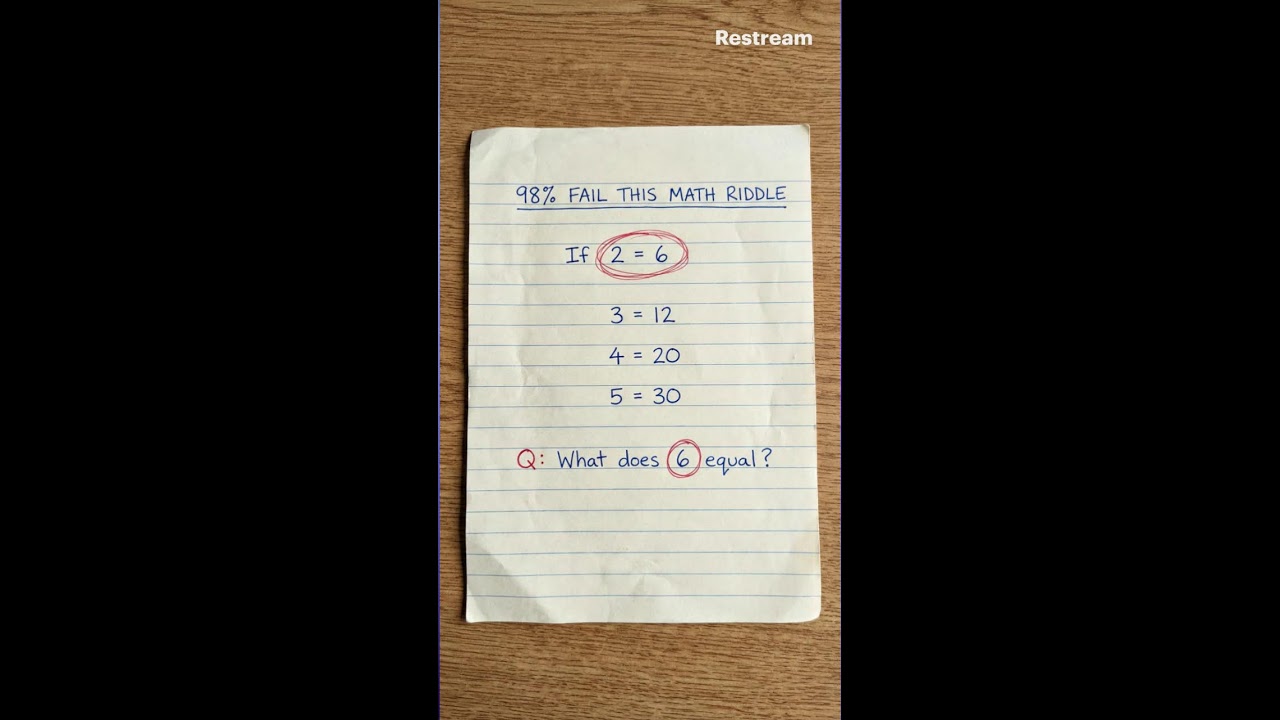 Restream
98% FAIL THIS MATH RIDDLE
If 2 = 6
3 = 12
4 = 20
5 = 30
Q: What does 6 equal?